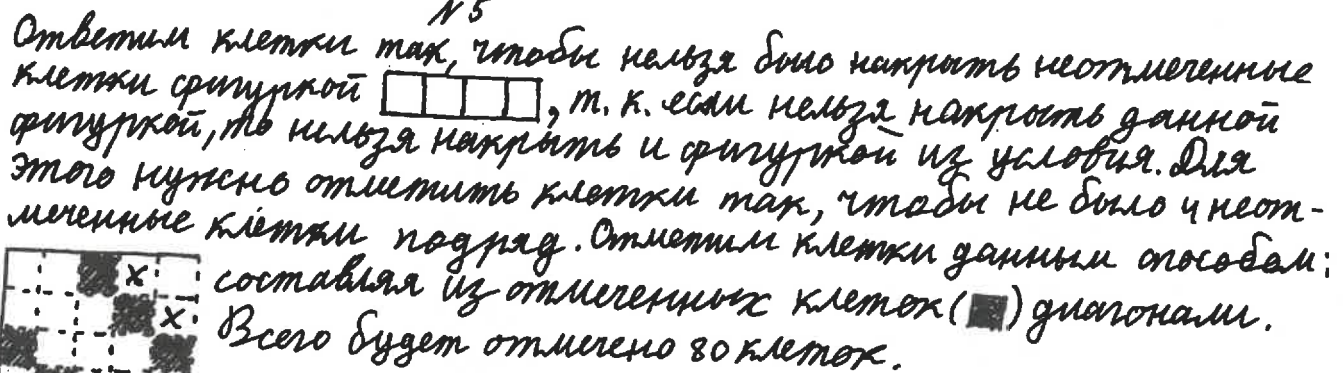 №5
Отметим клетки так, чтобы нельзя было накрыть неотмеченные
клетки фигуркой , т. к. если нельзя накрыть данной
фигуркой, то нельзя накрыть и фигуркой из условия. Для
этого нужно отметить клетки так, чтобы не было 4 неот-
меченные клетки подряд. Отметим клетки данным способом:
составляя из отмеченных клеток ( ) диагонали.
Всего будет отмечено 80 клеток.
x
x